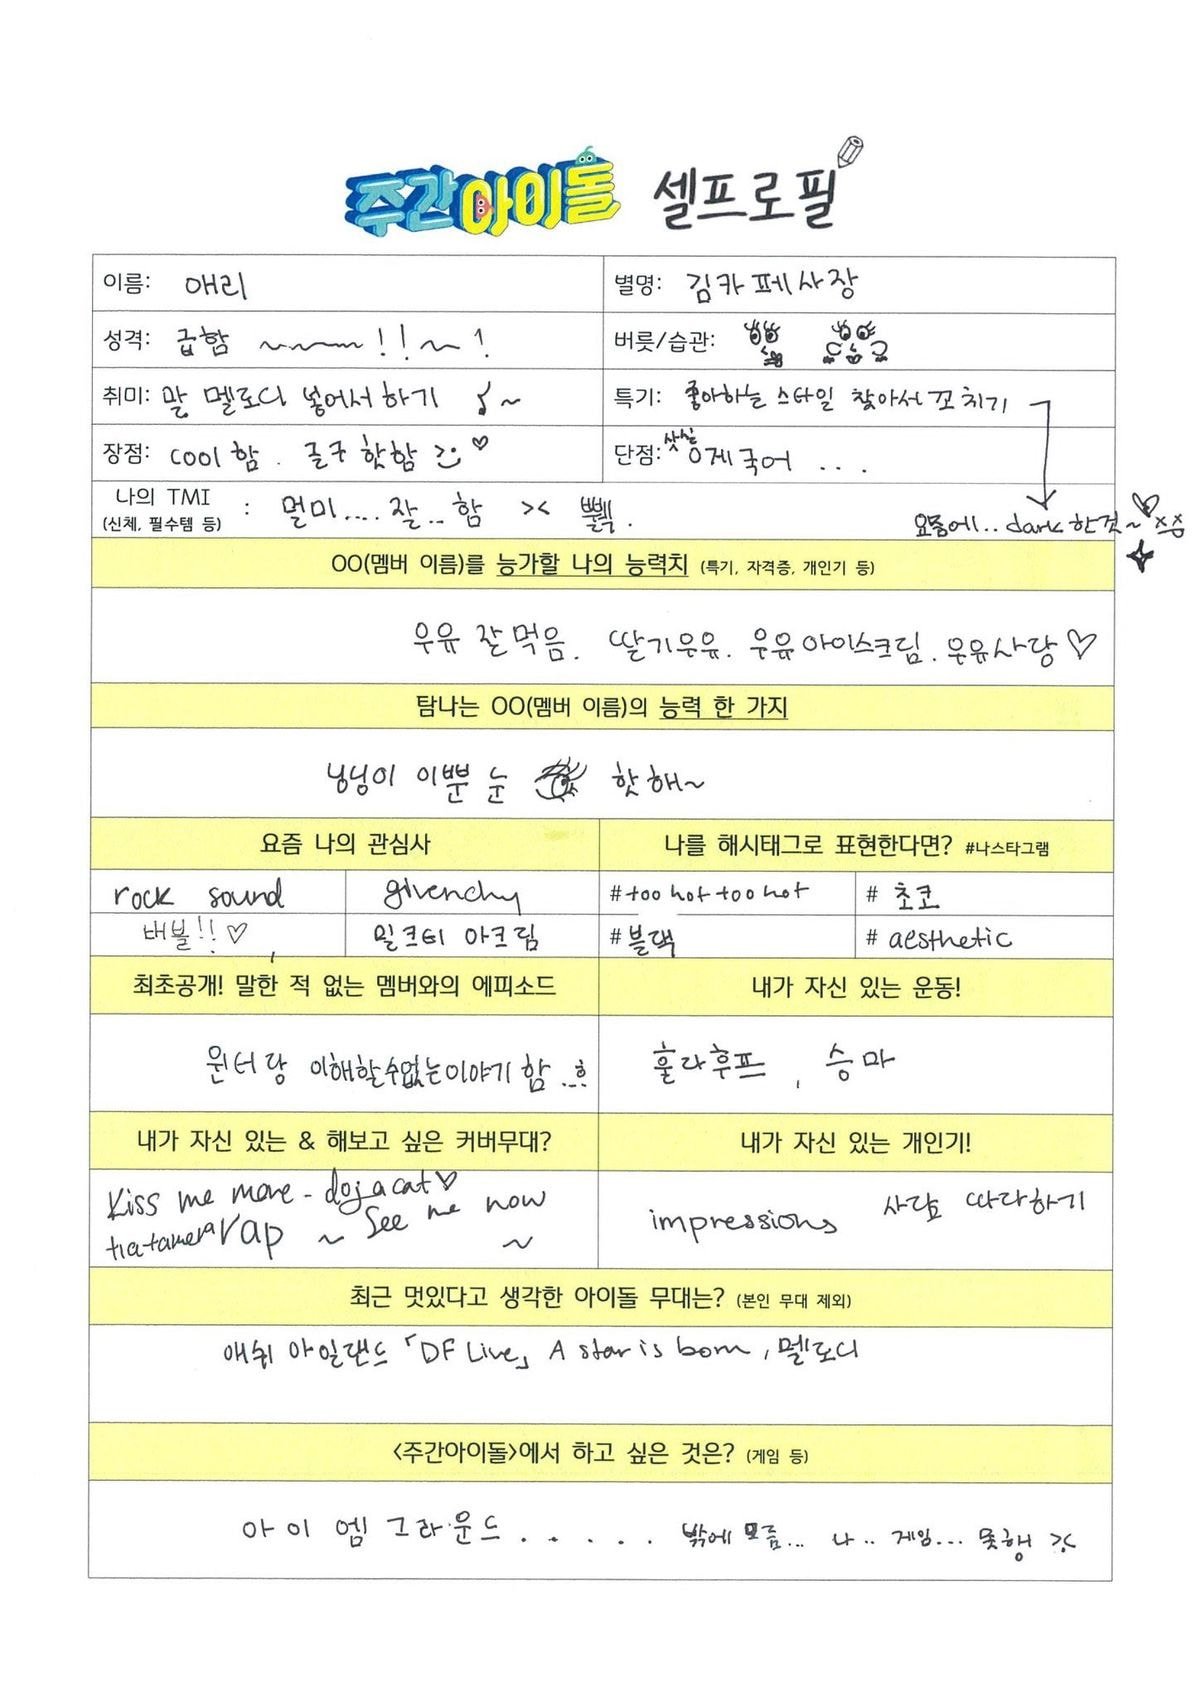 주간아이돌 셀프로필
이름: 애리
별명: 김카페사장
성격: 급함 ~~~!!~!
버릇/습관:
취미: 말 멜로디 넣어서 하기 ~
특기: 좋아하는 스타일 찾아서 꼬치기
장점: cool함. 글구 핫함 ♡
단점: 삿실 ㅇ게국어 ...
나의 TMI : 멀미.... 잘.. 함 ><
(신체, 필수템 등)
요즘에.. dark한것~ ♡
OO(멤버 이름)를 능가할 나의 능력치 (특기, 자격증, 개인기 등)
우유 잘먹음. 딸기우유. 우유아이스크림. 우유사랑♡
탐나는 OO(멤버 이름)의 능력 한 가지
닝닝이 이뿐 눈 핫해~
요즘 나의 관심사
나를 해시태그로 표현한다면? #나스타그램
rock sound
givenchy
#too hot too hot
# 초코
버블!!♡
밀크티 아크림
#블랙
# aesthetic
최초공개! 말한 적 없는 멤버와의 에피소드
내가 자신 있는 운동!
윈터랑 이해할수없는이야기 함
훌라후프, 승마
내가 자신 있는 & 해보고 싶은 커버무대?
내가 자신 있는 개인기!
Kiss me more - doja cat♡
rap ~ See me now ~
impressions 사람 따라하기
최근 멋있다고 생각한 아이돌 무대는? (본인 무대 제외)
애쉬 아일랜드 「DF Live」 A star is born, 멜로디
<주간아이돌>에서 하고 싶은 것은? (게임 등)
아이 엠 그라운드 ..... 밖에 모름... 나.. 게임... 못행